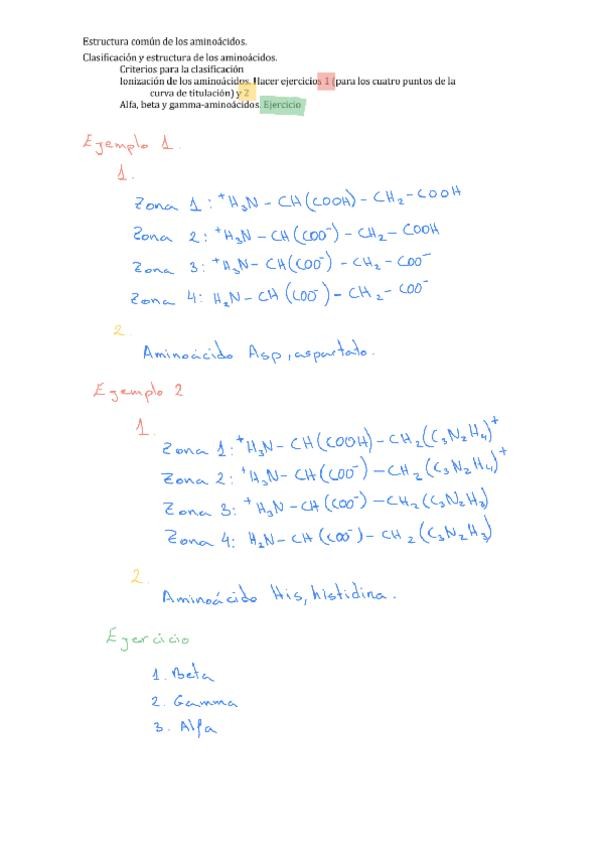 Estructura común de los aminoácidos.
Clasificación y estructura de los aminoácidos.
Criterios para la clasificación
Ionización de los aminoácidos. Hacer ejercicios 1 (para los cuatro puntos de la
curva de titulación) y 2
Alfa, beta y gamma-aminoácidos. Ejercicio
Ejemplo 1.
1.
Zona 1: ⁺H₃N – CH(COOH) – CH₂ – COOH
Zona 2: ⁺H₃N – CH(COO⁻) – CH₂ – COOH
Zona 3: ⁺H₃N – CH(COO⁻) – CH₂ – COO⁻
Zona 4: H₂N – CH (COO⁻) – CH₂ – COO⁻
2.
Aminoácido Asp, aspartato.
Ejemplo 2
1.
Zona 1: ⁺H₃N – CH(COOH) – CH₂(C₃N₂H₄)⁺
Zona 2: ⁺H₃N – CH(COO⁻) – CH₂(C₃N₂H₄)⁺
Zona 3: ⁺H₃N – CH(COO⁻) – CH₂(C₃N₂H₃)
Zona 4: H₂N – CH(COO⁻) – CH₂(C₃N₂H₃)
2.
Aminoácido His, histidina.
Ejercicio
1. Beta
2. Gamma
3. Alfa